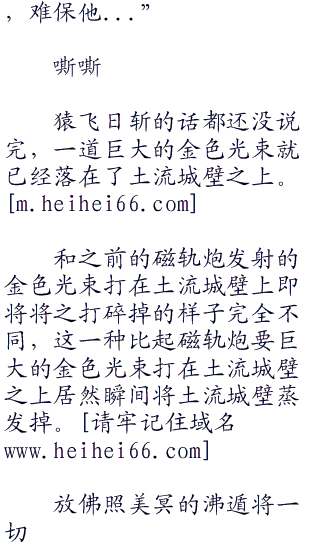 ，难保他...”
嘶嘶
猿飞日斩的话都还没说
完，一道巨大的金色光束就
已经落在了土流城壁之上。
[m.heihei66.com]
和之前的磁轨炮发射的
金色光束打在土流城壁上即
将将之打碎掉的样子完全不
同，这一种比起磁轨炮要巨
大的金色光束打在土流城壁
之上居然瞬间将土流城壁蒸
发掉。[请牢记住域名
www.heihei66.com]
放佛照美冥的沸遁将一
切